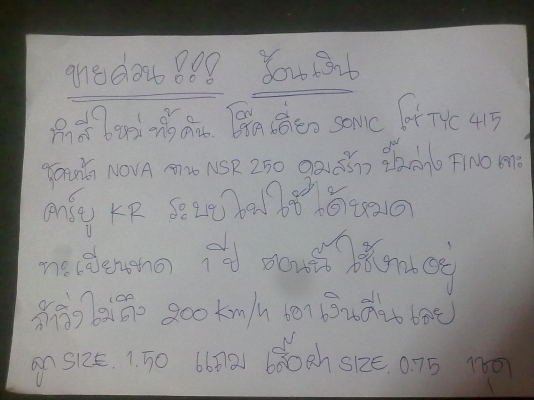 ขายด่วน !!! ร้อนเงิน
ทำสีใหม่ทั้งคัน. โช๊คเดี่ยว SONIC โซ่ TYC 415
ชุดหน้า NOVA จาน NSR 250 ดุมสร้าง ปั๊มล่าง FINO เตาะ
คาร์บู KR ระบบไฟใช้ได้หมด
ทะเบียนขาด 1 ปี ตอนนี้ใช้งานอยู่
ถ้าวิ่งไม่ถึง 200 km/h เอาเงินคืนเลย
ลูก SIZE. 1.50 แถม เสื้อฝา SIZE. 0.75 1 ชุด